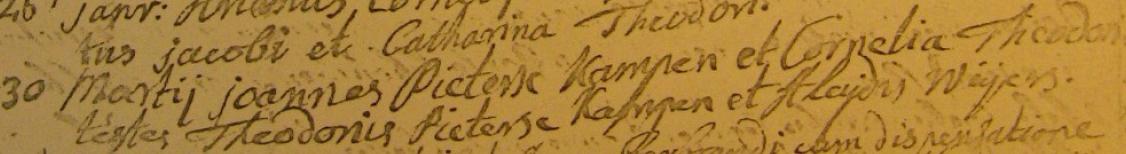 janr: Antonius
tus jacobi et Catharina Theodori.
30 Martij joannes Pieterse Kampen et Cornelia Theodori
testes Theodorus Pieterse Kampen et Aleydis Weijers.
cum dispensatione